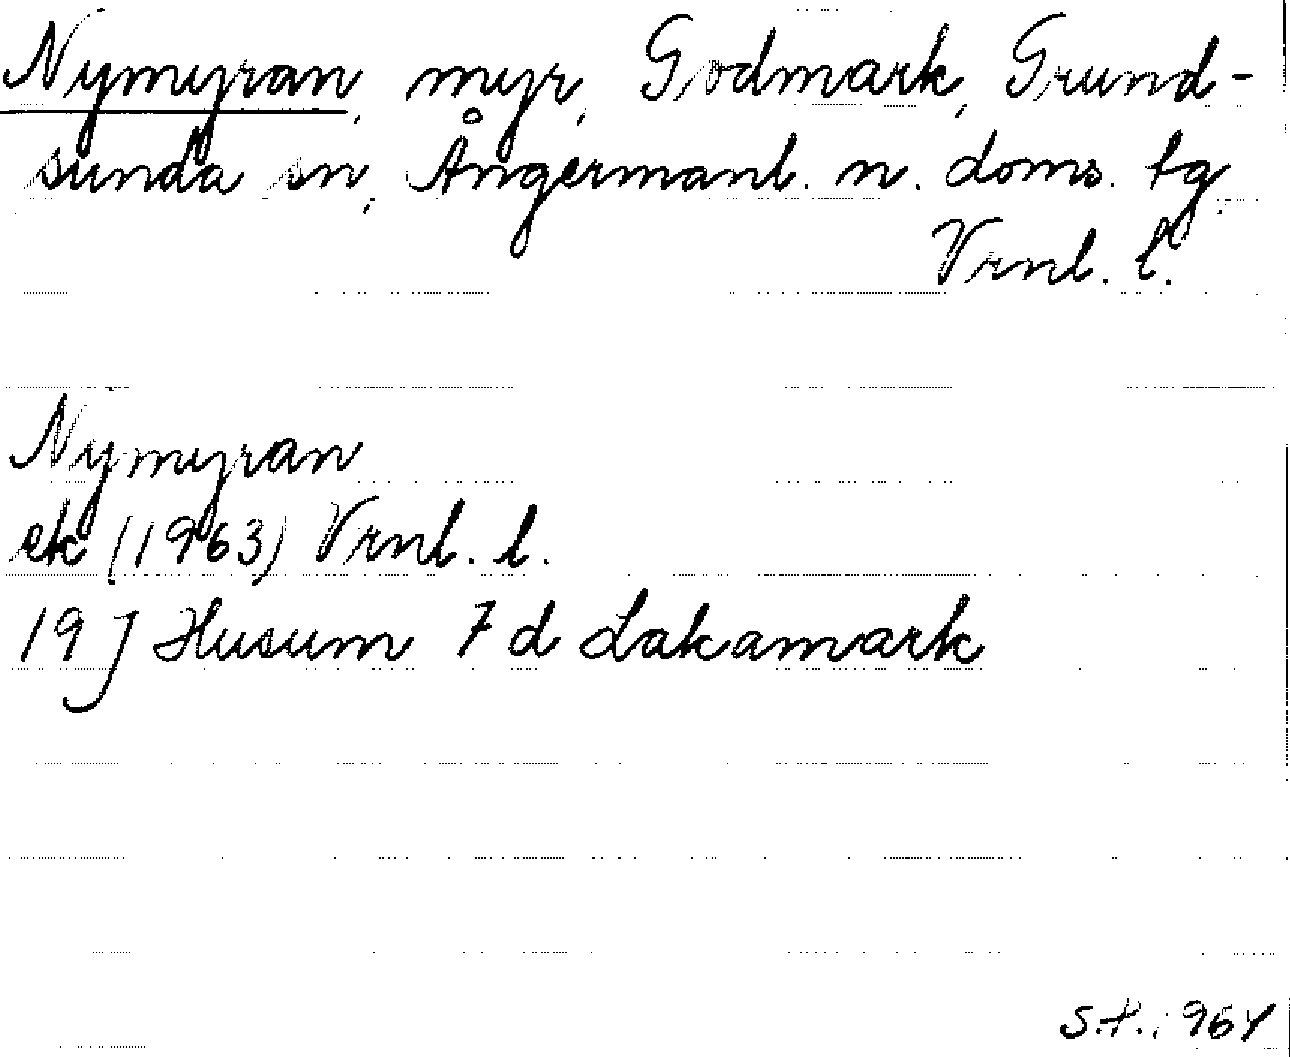 Nymyran, myr, Godmark, Grund-
sunda sn, Ångermanl. n. doms. tg,
Vrnl. l.
Nymyran
ek (1963) Vrnl. l.
19 J Husum 7 d Lakamark
S.P.; 964